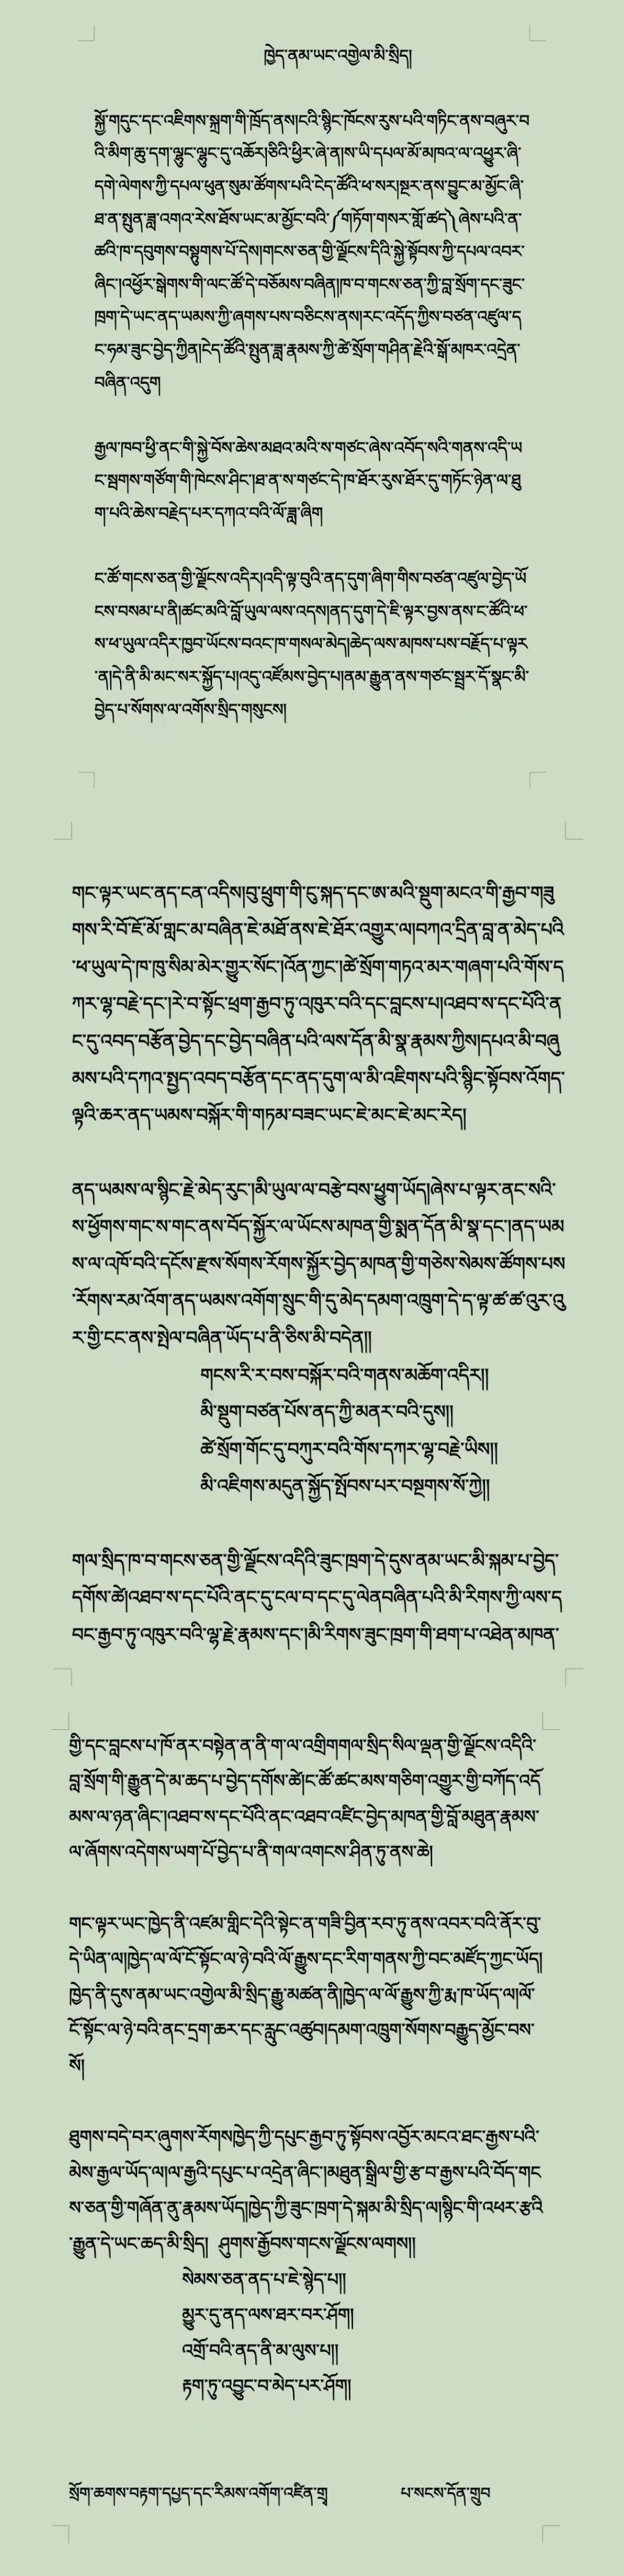 ཁྱེད་ནམ་ཡང་འགྱེལ་མི་སྲིད།
སྐྱོ་གདུང་དང་འཇིགས་སྐྲག་གི་ཁྲོད་ནས།ངའི་སྙིང་ཁོངས་རུས་པའི་གཏིང་ནས་བཞུར་བ
འི་མིག་ཆུ་དག་ལྷུང་ལྷུང་དུ་འཆོར།ཅིའི་ཕྱིར་ཞེ་ན།ས་ཡི་དཔལ་མོ་མཁའ་ལ་འཕྱུར་ཞི་
དགེ་ལེགས་ཀྱི་དཔལ་ཕུན་སུམ་ཚོགས་པའི་ངེད་ཚོའི་ཕ་སར།སྔར་ནས་བྱུང་མ་མྱོང་ཞི་
ཐ་ན་སྤུན་ཟླ་འགའ་རེས་ཐོས་ཡང་མ་མྱོང་བའི་༼གཏོག་གསར་གློ་ཚད༽ཞེས་པའི་ན་
ཚའི་ཁ་དབུགས་བསྟུགས་པོ་དེས།གངས་ཅན་གྱི་ལྗོངས་དིའི་སྐྱེ་སྟོབས་ཀྱི་དཔལ་འབར་
ཞིང་།འཕྱོར་སྒེགས་གི་ལང་ཚོ་དེ་བཅོམས་བཞིན།ཁ་བ་གངས་ཅན་ཀྱི་བླ་སྲོག་དང་ཟུང་
ཁྲག་དེ་ཡང་ནད་ཡམས་ཀྱི་ཞགས་པས་བཅིངས་ནས།རང་འདོད་ཀྱིས་བཙན་འཛུལ་ད
ང་ཧམ་ཟུང་བྱེད་ཀྱིན།ངེད་ཚོའི་སྤུན་ཟླ་རྣམས་ཀྱི་ཚེ་སྲོག་གཤིན་རྗེའི་སྒོ་མཁར་འདྲེན་
བཞིན་འདུག
རྒྱལ་ཁབ་ཕྱི་ནང་གི་སྐྱེ་བོས་ཆེས་མཐའ་མའི་ས་གཙང་ཞེས་འབོད་སའི་གནས་འདི་ཡ
ང་སྦྲགས་གཙོག་གི་ཁེངས་ཤིང་།ཐ་ན་ས་གཙང་དེ་ཁ་ཐོར་རུས་ཐོར་དུ་གཏོང་ཉེན་ལ་ཐུ
ག་པའི་ཆེས་བརྗེད་པར་དཀའ་བའི་ལོ་ཟླ་ཞིག
ང་ཚོ་གངས་ཅན་གྱི་ལྗོངས་འདིར།འདི་ལྟ་བུའི་ནད་དུག་ཞིག་གིས་བཙན་འཛུལ་བྱེད་ཡོ
ངས་བསམ་པ་ནི།ཚང་མའི་བློ་ཡུལ་ལས་འདས།ནད་དུག་དེ་ཇི་ལྟར་བྱས་ནས་ང་ཚོའི་ཕ་
ས་ཕ་ཡུལ་འདིར་ཁྱབ་ཡོངས་བའང་ཁ་གསལ་མེད།ཆེད་ལས་མཁས་པས་བརྗོད་པ་ལྟར
་ན།དེ་ནི་མི་མང་སར་སྐྱོད་པ།འདུ་འཛོམས་བྱེད་པ།ནམ་རྒྱུན་ནས་གཙང་སྦྲར་དོ་སྣང་མི་
བྱེད་པ་སོགས་ལ་འགོས་སྲིད་གསུངས།
གང་ལྟར་ཡང་ནད་ངན་འདིས།བུ་ཕྲུག་གི་ངུ་སྐད་དང་ཨ་མའི་སྡུག་མངའ་གི་རྒྱབ་གཟུ
གས་རི་བོ་ཇོ་མོ་གླང་མ་བཞིན་ཇེ་མཐོ་ནས་ཇེ་ཐོར་འགྱུར་ལ།བཀའ་དྲིན་བླ་ན་མེད་པའི
་ཕ་ཡུལ་དེ་ཁ་ཁུ་སིམ་མེར་གྱུར་སོང་།འོན་ཀྱང་།ཚེ་སྲོག་གཏའ་མར་གཞག་པའི་གོས་ད
ཀར་ལྷ་བརྗེ་དང་།རེ་བ་སྟོང་ཕྲག་རྒྱབ་ཏུ་འཁུར་བའི་དང་བླངས་པ།འཐབ་ས་དང་པོའི་ན
ང་དུ་འབད་བརྩོན་བྱེད་དང་བྱེད་བཞིན་པའི་ལས་དོན་མི་སྣ་རྣམས་ཀྱིས།དཔའ་མི་བཞུ
མས་པའི་དཀའ་སྤྱད་འབད་བརྩོན་དང་ནད་དུག་ལ་མི་འཇིགས་པའི་སྙིང་སྟོབས་འོག།ད་
ལྟའི་ཆར་ནད་ཡམས་བསྐོར་གི་གཏམ་བཟང་ཡང་ཇེ་མང་ཇེ་མང་རེད།
ནད་ཡམས་ལ་སྙིང་རྗེ་མེད་རུང་།མི་ཡུལ་ལ་བརྩེ་བས་ཕྱུག་ཡོད།ཞེས་པ་ལྟར་ནང་སའི་
ས་ཕྱོགས་གང་ས་གང་ནས་བོད་སྐྱོར་ལ་ཡོངས་མཁན་གྱི་སྨན་དོན་མི་སྣ་དང་།ནད་ཡམ
ས་ལ་འཁོ་བའི་དངོས་རྫས་སོགས་རོགས་སྐྱོར་བྱེད་མཁན་གྱི་གཅེས་སེམས་ཚོགས་པས
་རོགས་རམ་འོག་ནད་ཡམས་འགོག་སྲུང་གི་དུ་མེད་དམག་འཁྲུག་དེ་ད་ལྟ་ཚ་ཚ་འུར་འུ
ར་གྱི་ངང་ནས་སྤེལ་བཞིན་ཡོད་པ་ནི་ཅིས་མི་བདེན།།
གངས་རི་ར་བས་བསྐོར་བའི་གནས་མཆོག་འདིར།།
མི་སྡུག་བཙན་པོས་ནད་ཀྱི་མནར་བའི་དུས།།
ཚེ་སྲོག་གོང་དུ་བཀུར་བའི་གོས་དཀར་ལྷ་བརྗེ་ཡིས།།
མི་འཇིགས་མདུན་སྐྱོད་སྤོབས་པར་བསྔགས་སོ་ཀྱེ།།
གལ་སྲིད་ཁ་བ་གངས་ཅན་གྱི་ལྗོངས་འདིའི་ཟུང་ཁྲག་དེ་དུས་ནམ་ཡང་མི་སྐམ་པ་བྱེད་
དགོས་ཚེ།འཐབ་ས་དང་པོའི་ནང་དུ་ངལ་བ་དང་དུ་ལེནབཞིན་པའི་མི་རིགས་ཀྱི་ལས་ད
བང་རྒྱབ་ཏུ་འཁུར་བའི་ལྷ་རྗེ་རྣམས་དང་།མི་རིགས་ཟུང་ཁྲག་གི་ཐག་པ་འཐེན་མཁན་
གྱི་དང་བླངས་པ་ཁོ་ནར་བསྟེན་ན་ནི་ག་ལ་འགྲིགགལ་སྲིད་སིལ་ལྡན་གྱི་ལྗོངས་འདིའི་
བླ་སྲོག་གི་རྒྱུན་དེ་མ་ཆད་པ་བྱེད་དགོས་ཚེ།ང་ཚོ་ཚང་མས་གཅིག་འགྱུར་གྱི་བཀོད་འདོ
མས་ལ་ཉན་ཞིང་།འཐབ་ས་དང་པོའི་ནང་འཐབ་འཛིང་བྱེད་མཁན་གྱི་བློ་མཐུན་རྣམས་
ལ་ཞོགས་འདེགས་ཡག་པོ་བྱེད་པ་ནི་གལ་འགངས་ཤིན་ཏུ་ནས་ཆེ།
གང་ལྟར་ཡང་ཁྱེད་ནི་འཛམ་གླིང་དེའི་སྟེང་ན་གཟི་བྱིན་རབ་ཏུ་ནས་འབར་བའི་ནོར་བུ་
དེ་ཡིན་ལ།ཁྱེད་ལ་ལོ་ངོ་སྟོང་ལ་ཉེ་བའི་ལོ་རྒྱུས་དང་རིག་གནས་ཀྱི་བང་མཛོད་ཀྱང་ཡོད།
ཁྱེད་ནི་དུས་ནམ་ཡང་འགྱེལ་མི་སྲིད་རྒྱུ་མཚན་ནི།ཁྱེད་ལ་ལོ་རྒྱུས་ཀྱི་རྨ་ཁ་ཡོད་ལ།ལོ་
ངོ་སྟོང་ལ་ཉེ་བའི་ནང་དྲག་ཆར་དང་རླུང་འཚུབ།དམག་འཁྲུག་སོགས་བརྒྱུད་མྱོང་བས་
སོ།
ཐུགས་བདེ་བར་ཞུགས་རོགསཁྱེད་ཀྱི་དཔུང་རྒྱབ་ཏུ་སྟོབས་འབྱོར་མངའ་ཐང་རྒྱས་པའི་
མེས་རྒྱལ་ཡོད་ལ།ལ་རྒྱའི་དཔུང་པ་འདྲེན་ཞིང་།མཐུན་སྒྲིལ་གྱི་རྩ་བ་རྒྱས་པའི་བོད་གང
ས་ཅན་གྱི་གཞོན་ནུ་རྣམས་ཡོད།ཁྱེད་ཀྱི་ཟུང་ཁྲག་དེ་སྐམ་མི་སྲིད་ལ།སྙིང་གི་འཕར་རྩའི
་རྒྱུན་དེ་ཡང་ཆད་མི་སྲིད། ཤུགས་རྒྱོབས་གངས་ལྗོངས་ལགས།།
སེམས་ཅན་ནད་པ་ཇི་སྙེད་པ།།
མྱུར་དུ་ནད་ལས་ཐར་བར་ཤོག།
འགྲོ་བའི་ནད་ནི་མ་ལུས་པ།།
རྟག་ཏུ་འབྱུང་བ་མེད་པར་ཤོག།
སྲོག་ཆགས་བརྟག་དཔྱད་དང་རིམས་འགོག་འཛིན་གྲྭ པ་སངས་དོན་གྲུབ